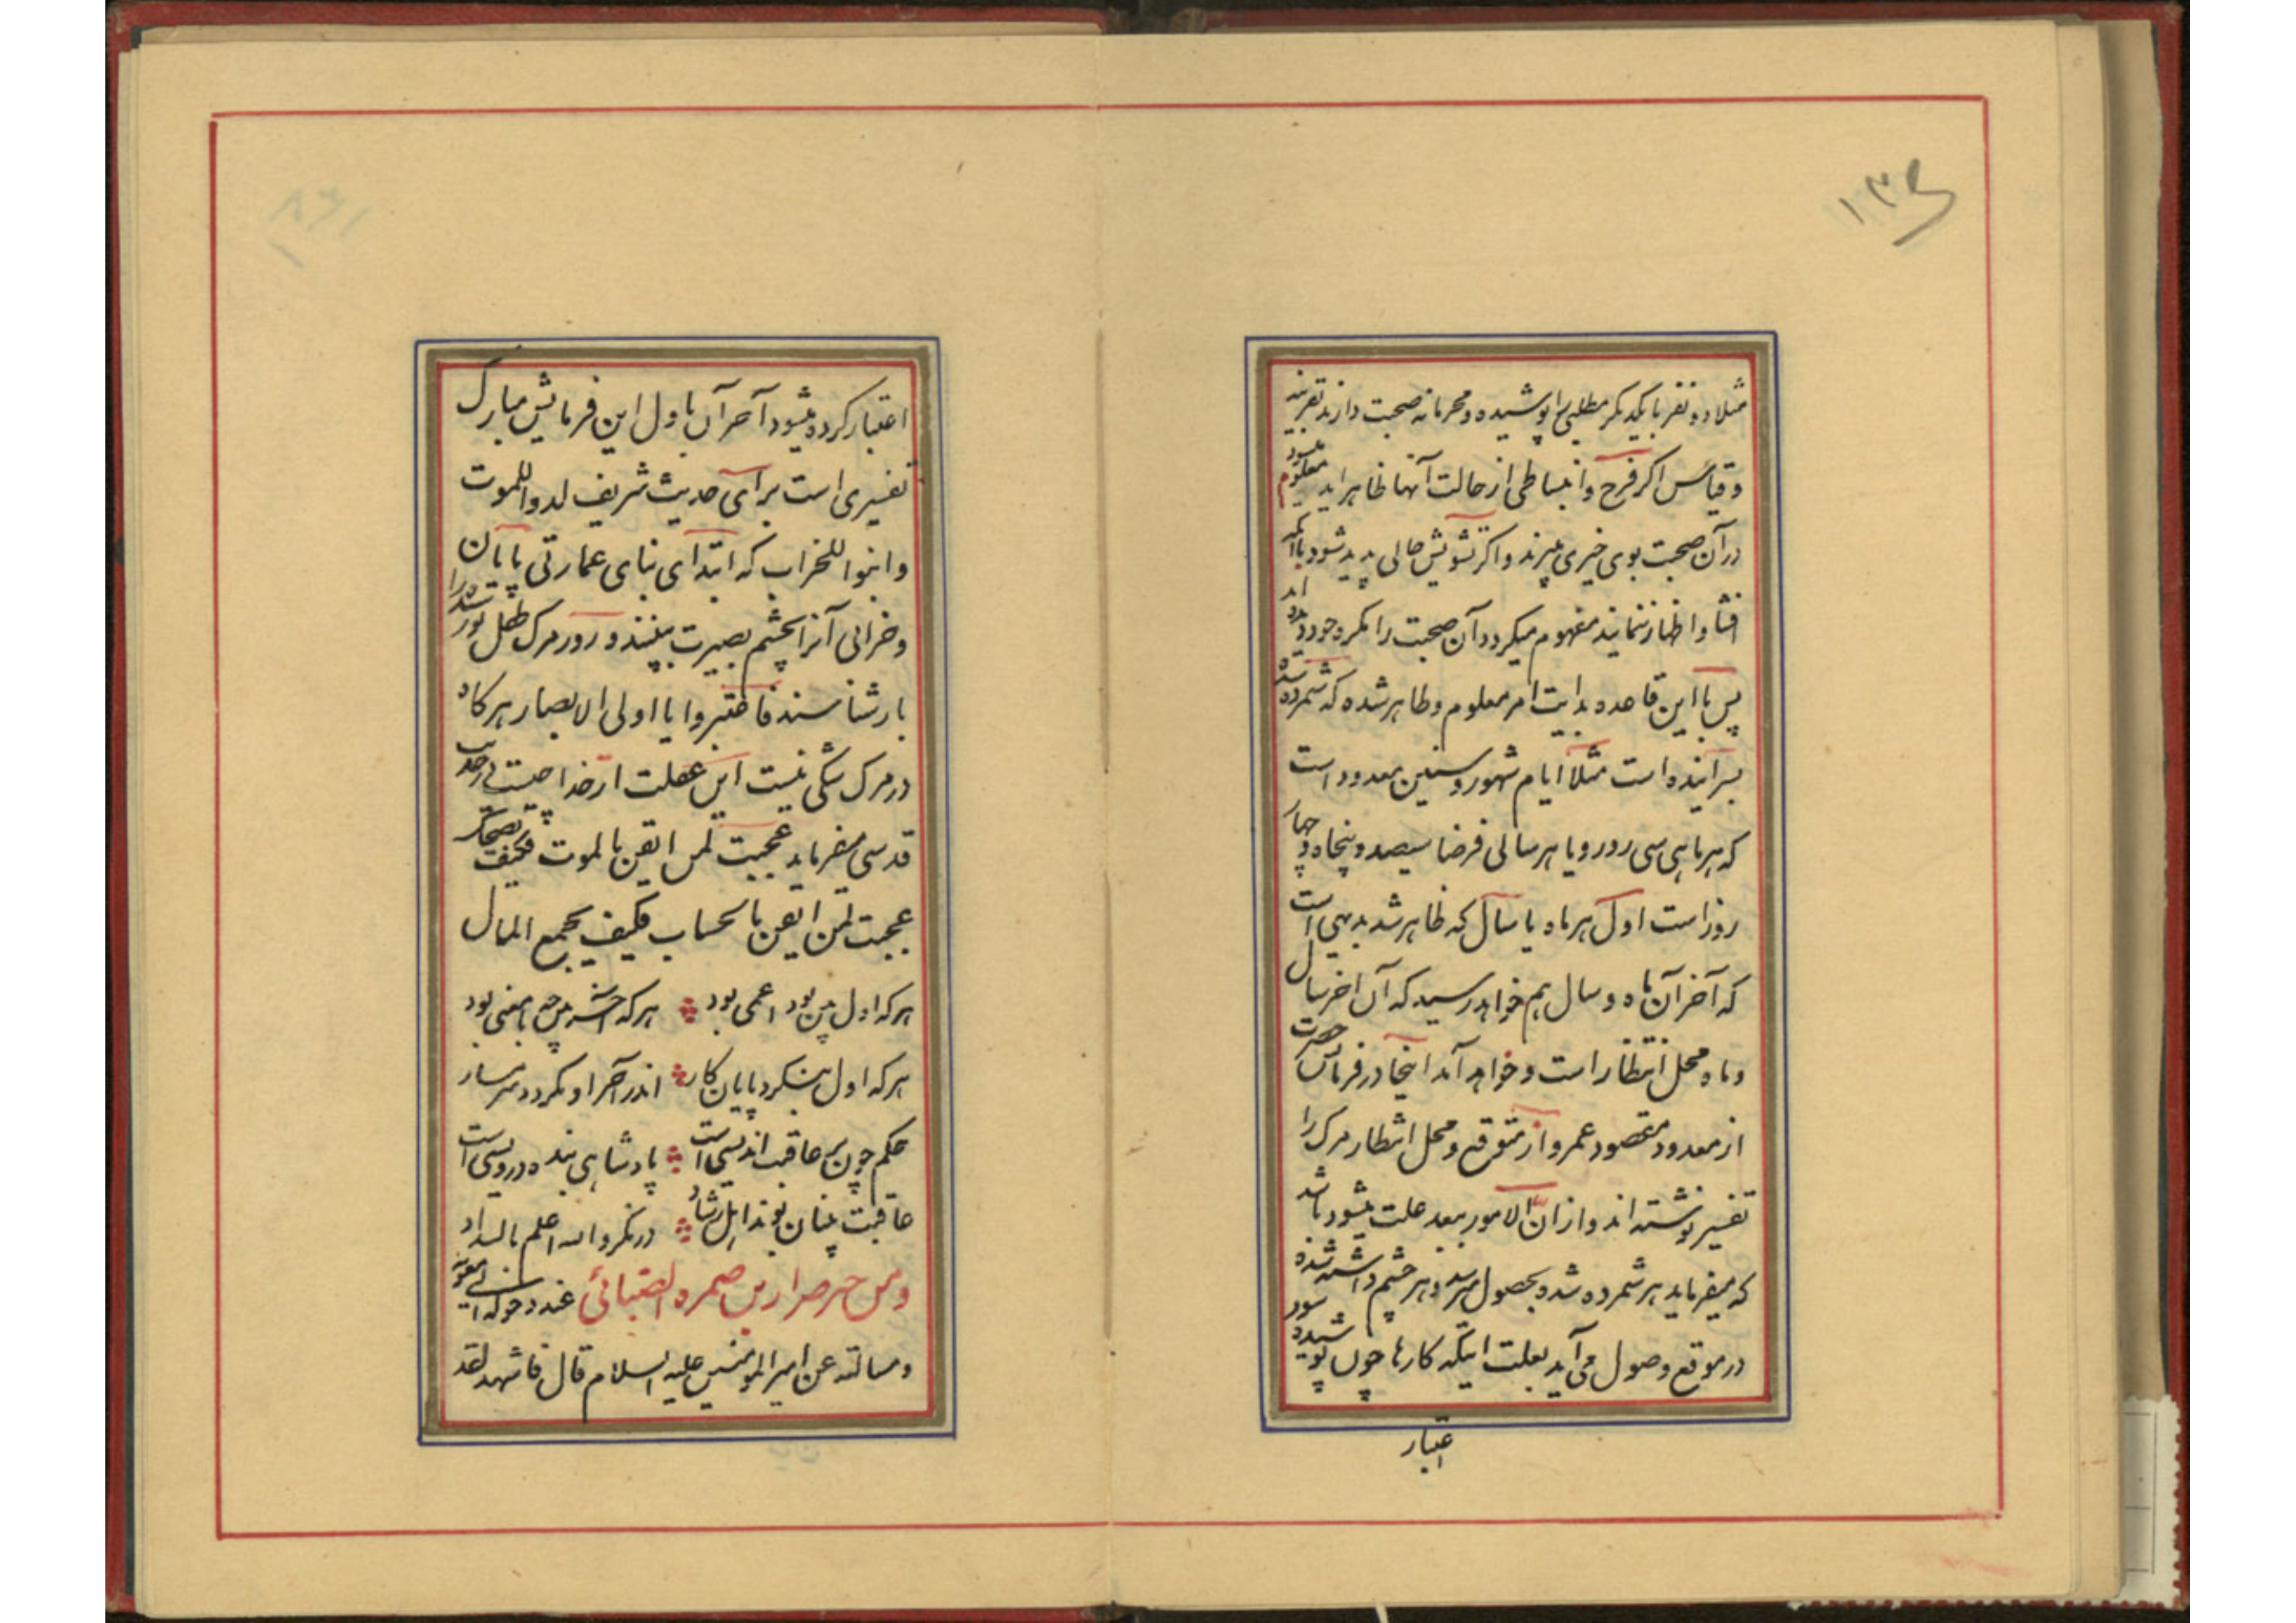 ۱۳۶
مثلا دو نفر با یکدیگر مطلبی را پوشیده و محرمانه صحبت دارند بقرینه
و قیاس اگر فرح و انبساطی از حالت آنها ظاهر آید معلوم میشود
در آن صحبت بوی خیری میبرند و اگر تشویش حالی پدید شود با آنکه
افشا و اظهار ننمایند مفهوم میگردد آن صحبت را مکره خود دیده اند
پس با این قاعده بدایت امر معلوم و ظاهر شده که شمرده شده
بسر آینده است مثلا ایام شهور و سنین معدود است
که هر ماهی سی روز و یا هر سالی فرضا سیصد و پنجاه و چهار
روز است اول هر ماه یا سال که ظاهر شد بدیهی است
که آخر آن ماه و سال هم خواهد رسید که آن اخر سال
و ماه محل انتظار است و خواهد آمد اینجا در فرمایش حضرت
از معدود مقصود عمر و از متوقع و محل انتظار مرک را
تفسیر نوشته اند و از ان الامور بنعد علت میشود باشد
که میفرماید هر شمرده شده بحصول میرسد و هر چشم داشته شده
در موقع وصول می آید بعلت اینکه کارها چون پوشیده شود
اعتبار
اعتبار کرده میشود آخر آن باول این فرمایش مبارک
تفسیری است برای حدیث شریف لدوا للموت
و ابنوا للخراب که ابتدای بنای عمارتی پایان
و خرابی آنرا بچشم بصیرت ببینند و روز مرک طفل نورسیده را
باز شناسند فاعتبروا یا اولی الابصار هرکاه
در مرک شکی نیست این غفلت از خدا چیست در حدیث
قدسی میفرماید عجبت لمن ایقن بالموت فکیف یضحک
عجبت لمن ایقن بالحساب فکیف یجمع المال
هرکه اول بین بود اعمی بود هرکه آخر بین چه بامعنی بود
هرکه اول بنگرد پایان کار اندر آخر او نگردد شرمسار
حکم چون بر عاقبت اندیشی است پادشاهی بنده درویشی است
عاقبت بینان بوند اهل رشاد درنگر والله اعلم بالسداد
و من خبر ضرار بن ضمره الضبائی عند دخوله الی معویه
و مسالته عن امیرالمومنین علیه السلام قال فاشهد لقد